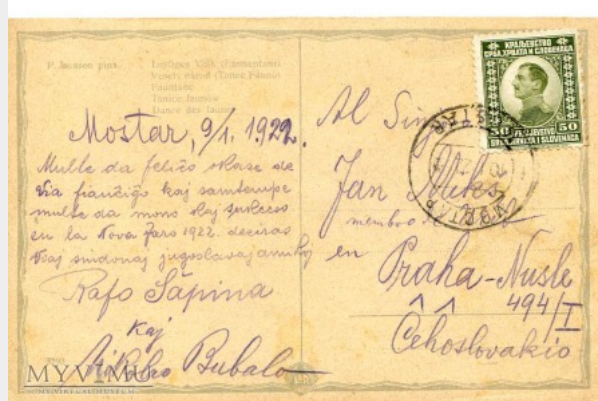 P. Janssen pinx.
Vesely národ (Tanec Faunů)
Fauntanc
Taniec faunów
Danse des faunes
КРАЉЕВСТВО
СРБА, ХРВАТА И СЛОВЕНАЦА
50 KRALJEVSTVO 50
SRBA, HRVATA I SLOVENACA
MOSTAR
Mostar, 9/1. 1922.
Multe da feliĉo okaze de
Via fianĉiĝo kaj samtempe
multe da mono kaj sukceso
en la Nova Jaro 1922. deziras
Viaj sindonaj jugoslavaj amikoj
Rafo Šapina
Kaj
Bubalo
Al Sinj
Jan
membro
en
Praha-Nusle
494/I
Ĉeĥoslovakio
MYVIMU
MY VIRTUAL MUSEUM